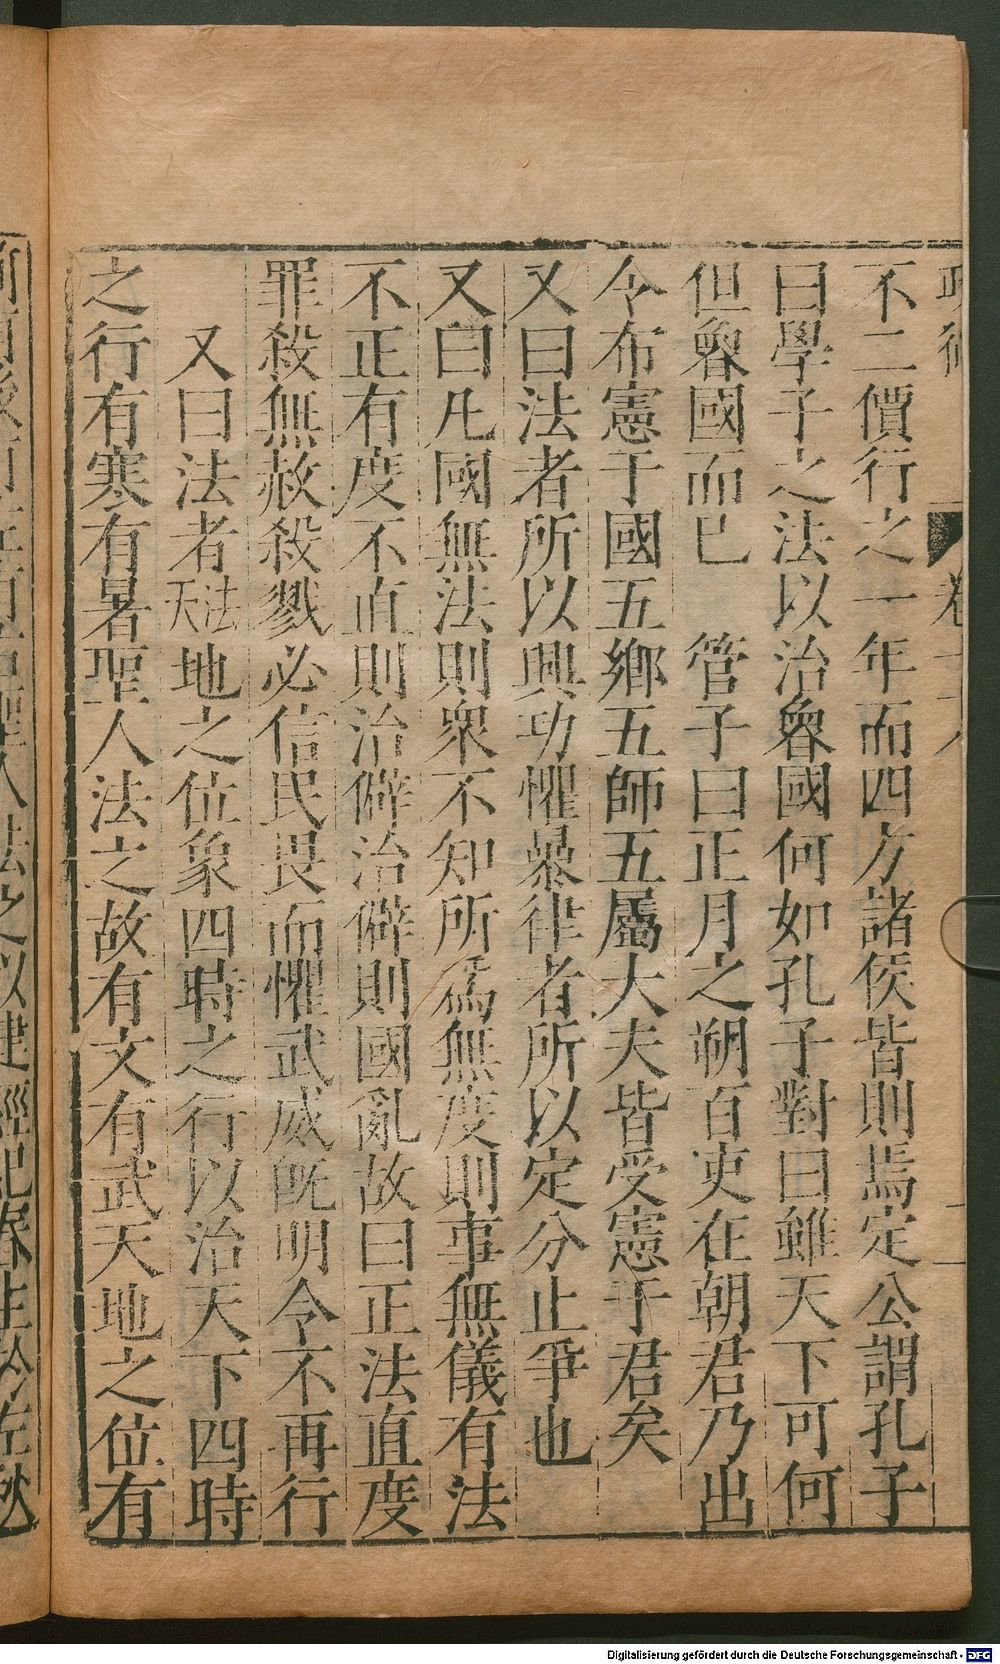 不二價行之一年而四方諸侯皆則焉定公謂孔子
曰學子之法以治魯國何如孔子對曰雖天下可何
但魯國而已　管子曰正月之朔百吏在朝君乃出
令布憲于國五鄉五師五屬大夫皆受憲于君矣
又曰法者所以興功懼暴律者所以定分止爭也
又曰凡國無法則眾不知所為無度則事無儀有法
不正有度不直則治僻治僻則國亂故曰正法直度
罪殺無赦殺戮必信民畏而懼武威旣明令不再行
又曰法者法天地之位象四時之行以治天下四時
之行有寒有暑聖人法之故有文有武天地之位有
Digitalisierung gefördert durch die Deutsche Forschungsgemeinschaft - DFG